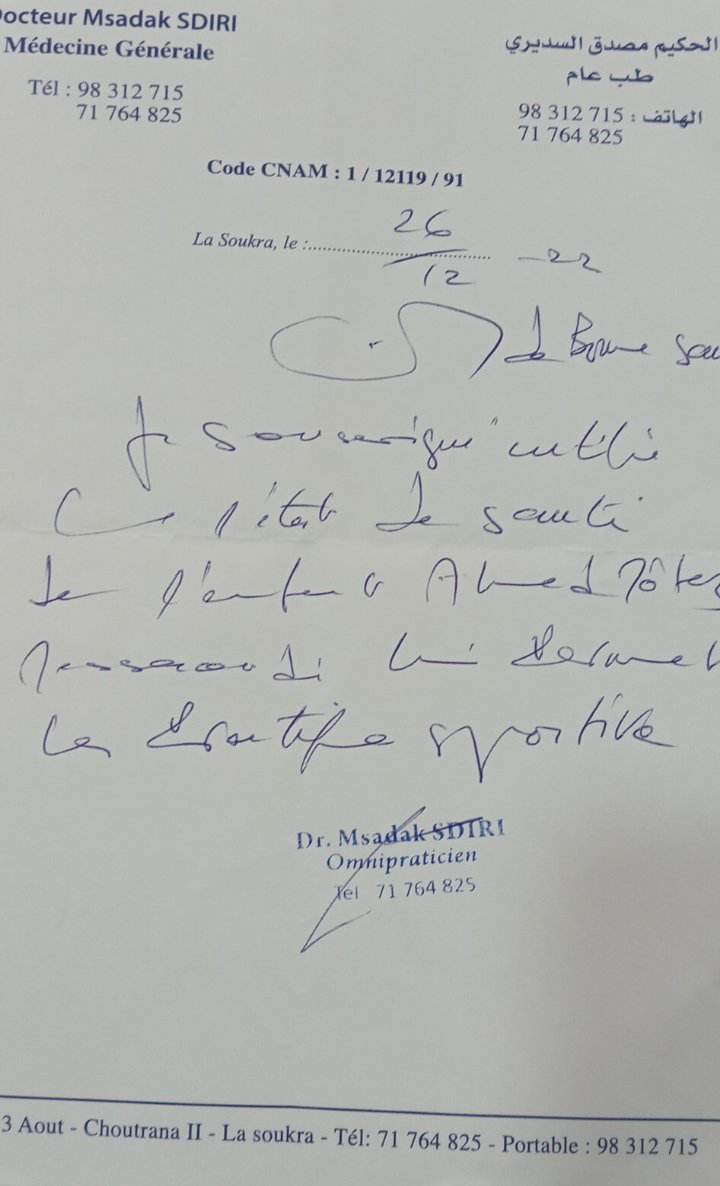 Docteur Msadak SDIRI
Médecine Générale
Tél : 98 312 715
71 764 825
الحكيم مصدق السديري
طب عام
الهاتف : 98 312 715
71 764 825
Code CNAM : 1 / 12119 / 91
La Soukra, le : 26
12 -22
de Bonne
Je soussigné certifie
que l'état de santé
de l'enfant Ahmed
lui permet
la pratique sportive
Dr. Msadak SDIRI
Omnipraticien
Tél 71 764 825
3 Aout - Choutrana II - La soukra - Tél: 71 764 825 - Portable : 98 312 715